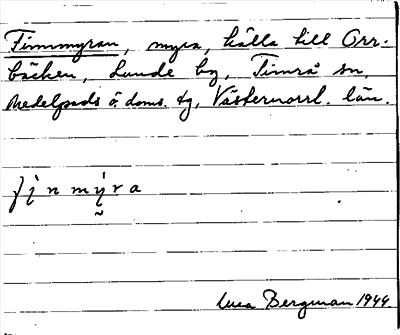 Finnmyran, myra, källa till Orr-
bäcken, Lunde by, Timrå sn,
Medelpads ö. doms. tg, Västernorrl. län.
fi̮nmy̮ra
Bergman 1944